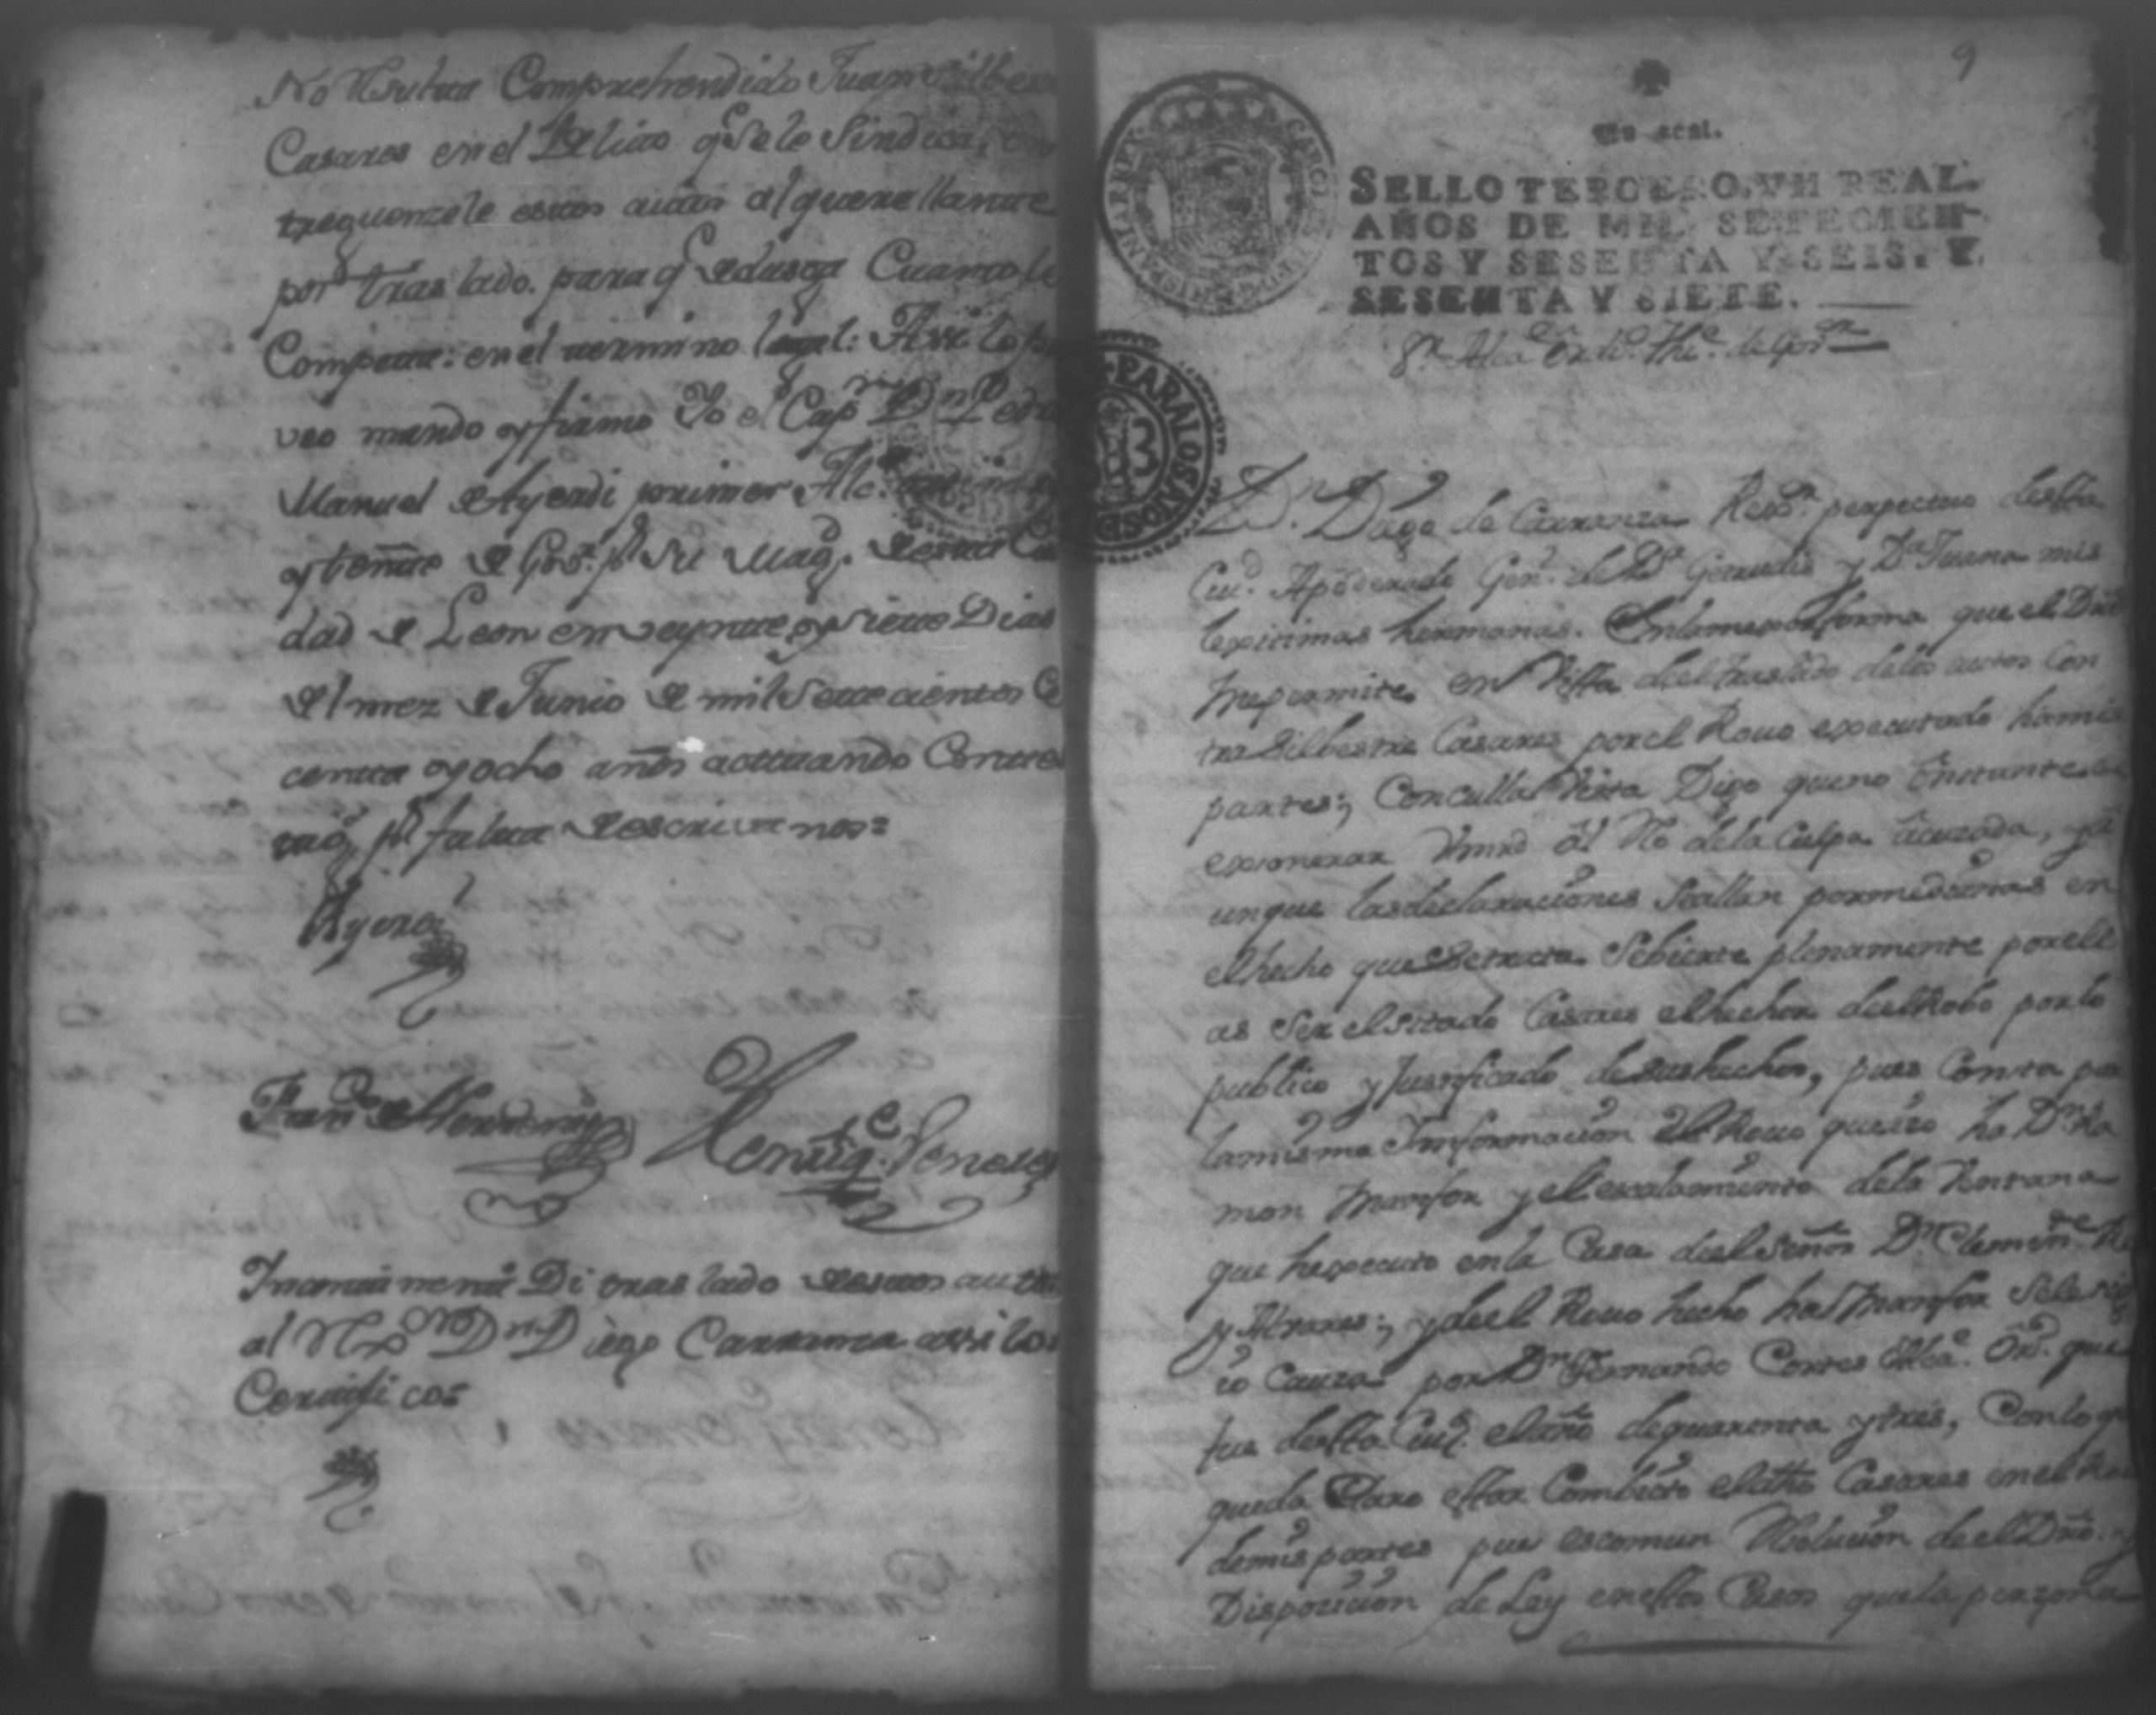 No Resulta Comprehendido Juan Silbes
Casares en el Delito q^e Se le Sindica, en
treguenzele estos autos al querellante
por traslado. para q^e deduzga Cuanto le
Competa: en el termino legal: Assi lo pro
veo mando y firmo Yo el Cap^n D^n Pedro
Manuel de Ayerdi primer Alc^e
y teniente de Gov^r. p^r Su Mag^d. de esta Ciu
dad de Leon en veynte y siete Dias
del mez de Junio de mil Setecientos
centa y ocho años actuando Con tes
tig^s p^r falta de escrivanos=
Ayerdi
Fran^co
Incontinenti Di traslado de estos autos
al D^n Diego Carranza assi lo
Certifico=
9
Un real.
SELLO TERCERO, VN REAL.
AÑOS DE MIL SETECIEN-
TOS Y SESENTA Y SEIS, Y
SESENTA Y SIETE.
S^r. Alca^e Ord^o. The^e. de Gov^or
PARA LOS AÑOS D
D^n. Diego de Carranza Reg^or. perpectuo desta
Ciu^d. Apoderado Gen^l. de D^a Getrudis y D^a Juana mis
lexitimas hermanas. En la mexor forma que el Dro
me permite en Vista del traslado de los autos Con
tra Silbestre Casares por el Rouo executado ha mis
partes; Con culla Vista Digo que no Obstante
exsonerar Vmrd al Reo de la Culpa acuzada, y a
unque las declaraciones Seallan por medianas en
el hecho que Se trata Se bierte plenamente por ell
as Ser el sitado Casares el hechor del Robo por lo
publico y Justificado de sus hechos, pues Consta por
la misma Informacion el Rouo que izo ha D^n Ra
mon Monfor y el escalamiento de la Ventana
que hexecuto en la Casa del Señor D^n Clemen^te Re
y Albares; y del Rouo hecho ha Monfor Se le sigu
io Cauza por D^n Fernando Cortes Alca^e. Ord^o. que
fue desta Ciu^d. el año de quarenta y tres, Con lo q^e
queda Claro estar Combicto el dho Casares en el Ro
de mis partes pues es comun Resolucion de el Dro. y
Disposicion de Ley en estos Casos que la perzona